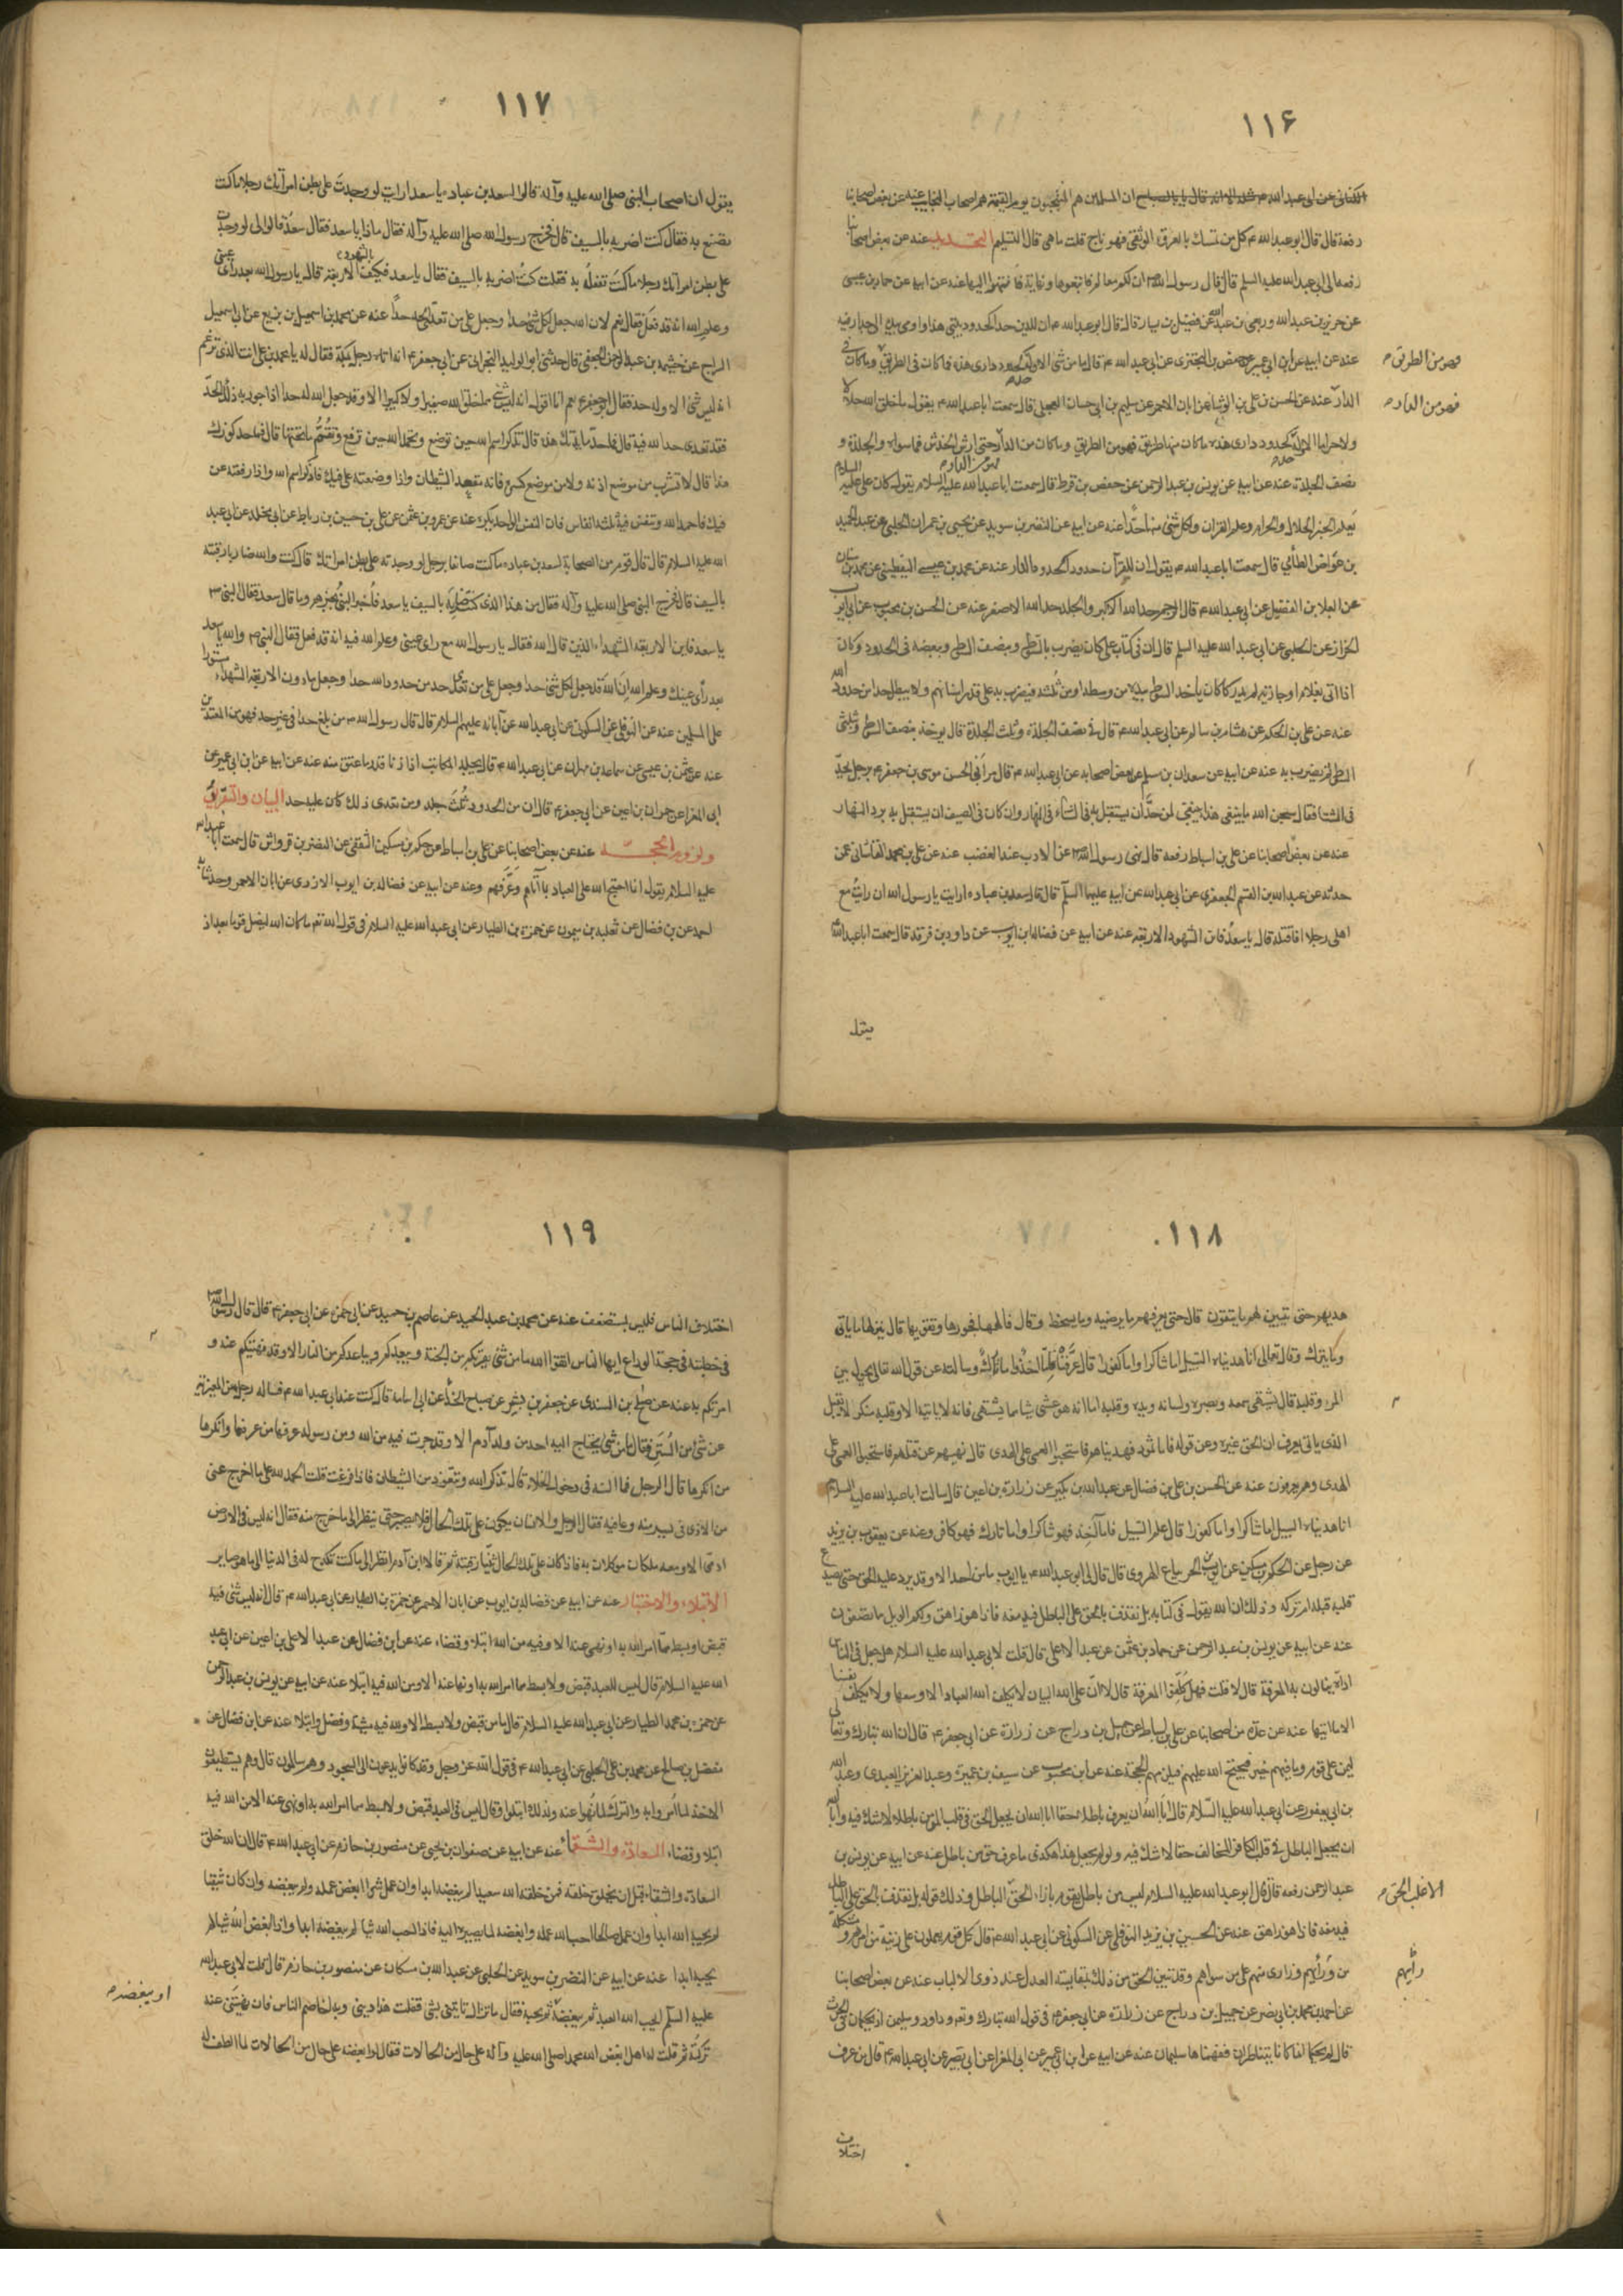 ١١۶
الكنانى عن ابى عبد الله ان المسلمين هم المنتجبون يوم القيمة هم اصحاب النجايب عنه عن بعض اصحابنا
رفعه قال قال ابو عبد الله ع كل من تمسك بالعروة الوثقى فهو ناج قلت ما هى قال التسليم التحديد عنه عن بعض اصحابنا
رفعه الى ابى عبد الله عليه السلم قال قال رسول الله ان لكم معالم فاتبعوها ونهاية فانتهوا اليها عنه عن ابيه عن حماد بن عيسى
عن حريز بن عبد الله وربعى بن عبد الله عن فضيل بن يسار قال قال ابو عبد الله ع ان للدين حدا كحدود بيتى هذا واومى بيده الى جدار فيه
عنه عن ابيه عن ابن ابى عمير عن حفص بن البخترى عن ابى عبد الله ع قال ما من شئ الا وله حد كحدود دارى هذه فما كان فى الطريق وما كان فى
فهو من الطريق
الدار عنه عن الحسن بن على بن الوشا عن ابان الاحمر عن سليم بن ابى حسان العجلى قال سمعت ابا عبد الله ع يقول ما خلق الله حلالا
فهو من الدار
ولا حراما الا وله حد كحدود دارى هذه ما كان منها طريق فهو من الطريق وما كان من الدار حتى ارش الخدش فما سواه والجلدة و
نصف الجلدة عنه عن ابيه عن يونس بن عبد الرحمن عن حفص بن قرط قال سمعت ابا عبد الله عليه السلام يقول كان على عليه السلام
يعلم الخبر الحلال والحرام وعلم القران ولكل شئ منهما حدا عنه عن ابيه عن النضر بن سويد عن يحيى بن عمران الحلبى عن عبد الحميد
بن عواض الطائى قال سمعت ابا عبد الله ع يقول ان للقرآن حدودا كحدود الدار عنه عن محمد بن عيسى اليقطينى عن محمد بن سنان
عن العلا بن الفضيل عن ابى عبد الله ع قال الرجم حد الله الاكبر والجلد حد الله الاصغر عنه عن الحسن بن محبوب عن ابى ايوب
الخزاز عن الحلبى عن ابى عبد الله عليه السلم قال ان فى كتاب على كان يضرب بالسوط وبنصف السوط وببعضه فى الحدود وكان
اذا اتى بغلام او جارية لم يدركا كان يأخذ السوط بيده من وسطه او من ثلثه فيضرب به على قدر اسنانهم ولا يبطل حدا من حدود الله
عنه عن على بن الحكم عن هشام بن سالم عن ابى عبد الله ع قال فى نصف الجلدة وثلث الجلدة قال يوخذ بنصف السوط وثلثى
السوط ثم يضرب به عنه عن ابيه عن سعدان بن مسلم عن بعض اصحابه عن ابى عبد الله ع قال مر ابى الحسن موسى بن جعفر ع برجل يحد
فى الشتا فقال سبحن الله ما ينبغى هذا ينبغى لمن حد ان يستقبل به فى الشتاء فى النهار وان كان فى الصيف ان يستقبل به برد النهار
عنه عن بعض اصحابنا عن على بن اسباط رفعه قال نهى رسول الله عن الادب عند الغضب عنه عن على بن محمد القاسانى عمن
حدثه عن عبد الله بن القسم الجعفرى عن ابى عبد الله عن ابيه عليهما السلم قال قال سعد بن عباده ارايت يا رسول الله ان رايت مع
اهلى رجلا افاقتله قال يا سعد فاين الشهود الاربعه عنه عن ابيه عن فضاله بن ايوب عن داود بن فرقد قال سمعت ابا عبد الله
يقول
١١٧
يقول ان اصحاب النبى صلى الله عليه وآله قالوا لسعد بن عباده يا سعد ارايت لو وجدت على بطن امرأتك رجلا ما كنت
تصنع به فقال كنت اضربه بالسيف قال فخرج رسول الله صلى الله عليه وآله فقال ماذا يا سعد فقال سعد قالوا لى لو وجدت
على بطن امراتك رجلا ما كنت تفعل به فقلت كنت اضربه بالسيف فقال يا سعد فكيف بالشهود الاربعة قال يا رسول الله بعد رأى عينى
وعلم الله انه قد فعل فقال نعم لان الله جعل لكل شئ حدا وجعل على من تعدى الحد حدا عنه عن محمد بن اسمعيل بن بزيع عن ابى اسمعيل
السراج عن خيثمه بن عبد الرحمن الجعفى قال حدثنى ابو الوليد النجرانى عن ابى جعفر ع انه اتاه رجل بمكة فقال له يا محمد بن على انت الذى تزعم
انه ليس شئ الا وله حد فقال ابو جعفر ع نعم انا اقول انه ليس شئ مما خلق الله صغيرا ولا كبيرا الا وقد جعل الله له حدا اذا جوز به ذلك الحد
فقد تعدى حد الله فيه قال فما حد مايدتك هذه قال تذكر اسم الله حين توضع وتحمد الله حين ترفع وتقم ما تحتها قال فما حد كوزك
هذا قال لا تشرب من موضع اذنه ولا من موضع كسره فانه مقعد الشيطان واذا وضعته على فيك فاذكر اسم الله واذا رفعته عن
فيك فاحمد الله وتنفس فيه ثلثة انفاس فان النفس الواحد يكره عنه عن عمرو بن عثمن عن على بن حسين بن رباط عن ابى مخلد عن ابى عبد
الله عليه السلام قال قال قوم من الصحابة لسعد بن عباده ما كنت صانعا برجل لو وجدته على بطن امراتك قال كنت والله ضاربا رقبته
بالسيف قال فخرج النبى صلى الله عليه وآله فقال من هذا الذى كنت ضاربه بالسيف يا سعد فاخبر النبى بخبرهم وما قال سعد فقال النبى
يا سعد فاين الاربعة الشهداء الذين قال الله فقال يا رسول الله مع راى عينى وعلم الله فيه انه قد فعل فقال النبى والله يا سعد
بعد رأى عينك وعلم الله ان الله قد جعل لكل شئ حدا وجعل على من تعدى حد من حدود الله حدا وجعل ما دون الاربعة الشهداء مستورا
على المسلمين عنه عن النوفلى عن السكونى عن ابى عبد الله عن آبائه عليهم السلام قال قال رسول الله من بلغ حدا فى غير حد فهو من المعتدين
عنه عن عثمن بن عيسى عن سماعه بن مهران عن ابى عبد الله ع قال يجلد المكاتب اذا زنا قدر ما عتق منه عنه عن ابيه عن ابن ابى عمير عن
ابى المغرا عن حمران بن اعين عن ابى جعفر ع قال ان من الحدود ثلث جلد ومن تعدى ذلك كان عليه حد البيان والتعريف
ولزوم الحجة عنه عن بعض اصحابنا عن على بن اسباط عن حكم بن مسكين الثقفى عن النضر بن قرواش قال سمعت ابا عبد الله
عليه السلام يقول انما احتج الله على العباد بما آتاهم وعرفهم وعنه عن ابيه عن فضاله بن ايوب الازدى عن ابان الاحمر وحدثنا
احمد عن بن فضال عن ثعلبه بن ميمون عن حمزة بن الطيار عن ابى عبد الله عليه السلام فى قول الله تعم ما كان الله ليضل قوما بعد اذ
١١٨
هديهم حتى يتبين لهم ما يتقون قال حتى يعرفهم ما يرضيه وما يسخطه وقال فالهمها فجورها وتقويها قال بين لها ما ياتى
وما يترك وقال تعالى انا هديناه السبيل اما شاكرا واما كفورا قال عرفناه فاما آخذ واما تارك وسالته عن قول الله تعالى يحول بين
المرء وقلبه قال يشتهى سمعه وبصره ولسانه ويده وقلبه اما انه هو غشى شيا مما يشتهى فانه لا ياتيه الا وقلبه منكر لا يقبل
الذى ياتى يعرف ان الحق غيره وعن قوله فاما ثمود فهديناهم فاستحبوا العمى على الهدى قال نهيهم عن قتلهم فاستحبوا العمى على
الهدى وهم يعرفون عنه عن الحسن بن على بن فضال عن عبد الله بن بكير عن زرارة بن اعين قال سالت ابا عبد الله عليه السلام
انا هديناه السبيل اما شاكرا واما كفورا قال علم السبيل فاما آخذ فهو شاكر واما تارك فهو كافر وعنه عن يعقوب بن يزيد
عن رجل عن الحكم بن مسكين عن ايوب بن الحر بياع الهروى قال قال لى ابو عبد الله ع يا ايوب ما من احد الا وقد يرد عليه الحق حتى يصدع
قلبه قبله ام تركه وذلك ان الله يقول فى كتابه بل نقذف بالحق على الباطل فيدمغه فاذا هو زاهق ولكم الويل مما تصفون
عنه عن ابيه عن يونس بن عبد الرحمن عن حماد بن عثمن عن عبد الاعلى قال قلت لابى عبد الله عليه السلام هل جعل فى الناس
اداة ينالون به المعرفة قال لا قلت فهل كلفوا المعرفة قال لا ان على الله البيان لا يكلف الله العباد الا وسعها ولا يكلف نفسا
الا ما اتيها عنه عن عدة من اصحابنا عن على بن اسباط عن جميل بن دراج عن زرارة عن ابى جعفر ع قال ان الله تبارك وتعالى
ليمن على قوم وما فيهم خير فيحتج الله عليهم فيلزمهم الحجة عنه عن ابن محبوب عن سيف بن عميرة وعبد العزيز العبدى وعبد الله
بن ابى يعفور عن ابى عبد الله عليه السلام قال ابى الله ان يعرف باطلا حقا ابى الله ان يجعل الحق فى قلب المؤمن باطلا لا شك فيه وابى الله
ان يجعل الباطل فى قلب الكافر المخالف حقا لا شك فيه ولو لم يجعل هذا هكذى ما عرف حق من باطل عنه عن ابيه عن يونس بن
عبد الرحمن رفعه قال قال ابو عبد الله عليه السلام ليس من باطل يقوم بازاء الحق الباطل وذلك قوله بل نقذف بالحق على الباطل
الا غلب الحق
فيدمغه فاذا هو زاهق عنه عن الحسين بن يزيد النوفلى عن السكونى عن ابى عبد الله ع قال كل قوم يعملون على زينة من امرهم ومشكلة
من ورأيهم وزارى منهم على من سواهم وقد تبين الحق من ذلك بمقايسة العدل عند ذوى الالباب عنه عن بعض اصحابنا
رأيهم
عن احمد بن محمد بن ابى نصر عن جميل بن دراج عن زرارة عن ابى جعفر ع فى قول الله تبارك وتعم وداود وسليمن اذ يحكمان فى الحرث
قال لم يحكما انما كانا يتناظران ففهمناها سليمان عنه عن ابيه عن ابن ابى عمير عن ابى المغرا عن ابى بصير عن ابى عبد الله ع قال من عرف
اختلاف
١١٩
اختلاف الناس فليس بمستضعف عنه عن محمد بن عبد الحميد عن عاصم بن حميد عن ابى حمزه عن ابى جعفر ع قال قال رسول الله
فى خطبته فى حجة الوداع ايها الناس اتقوا الله ما من شئ يقربكم من الجنة ويبعدكم من النار الا وقد نهيتكم عنه و
امرتكم به عنه عن صلح بن السندى عن جعفر بن بشير عن صباح الحذا عن ابى اسامه قال كنت عند ابى عبد الله ع فساله رجل من المغيريه
عن شئ من السنن فقال ما من شئ يحتاج اليه احد من ولد آدم الا وقد جرت فيه من الله ومن رسوله عرفها من عرفها وانكرها
من انكرها قال الرجل فما السنه فى دخول الخلاء قال تذكر الله وتتعوذ من الشيطان فاذا فرغت قلت الحمد لله على ما اخرج عنى
من الاذى فى يسر منه وعافيه فقال الرجل والانسان يكون على تلك الحال فلا يصبر حتى ينظر الى ما خرج منه فقال انه ليس فى الارض
ادمى الا ومعه ملكان موكلان به فاذا كان على تلك الحال ثنيا رقبته ثم قالا ابن آدم انظر الى ما كنت تكدح له فى الدنيا الى ما هو صاير
الابتلاء والاختبار عنه عن ابيه عن فضاله بن ايوب عن ابان الاحمر عن حمزة بن الطيار عن ابى عبد الله ع قال انه ليس شئ فيه
قبض او بسط مما امر الله به او نهى عنه الا وفيه من الله ابتلا وقضاء عنه عن ابن فضال عن عبد الاعلى بن اعين عن ابى عبد
الله عليه السلام قال ليس للعبد قبض ولا بسط مما امر الله به او نها عنه الا ومن الله فيه ابتلا عنه عن ابيه عن يونس بن عبد الرحمن
عن حمزة بن محمد الطيار عن ابى عبد الله عليه السلام قال ما من قبض ولا بسط الا ولله فيه مشية وفضل وابتلاء عنه عن ابن فضال عن
مفضل بن صالح عن محمد بن على الحلبى عن ابى عبد الله ع فى قول الله عز وجل وقد كانوا يدعون الى السجود وهم سالمون قال وهم يستطيعون
الاخذ لما امروا به والترك لما نهوا عنه ولذلك ابتلوا وقال ليس فى العبد قبض ولا بسط مما امر الله به او نهى عنه الا من الله فيه
ابتلا وقضاء السعادة والشقاء عنه عن ابيه عن صفوان بن يحيى عن منصور بن حازم عن ابى عبد الله ع قال ان الله خلق
السعادة والشقاء قبل ان يخلق خلقه فمن خلقه الله سعيدا لم يبغضه ابدا وان عمل شرا ابغض عمله ولم يبغضه وان كان شقيا
لم يحبه الله ابدا وان عمل صالحا احب الله عمله وابغضه لما يصير اليه فاذا احب الله شيا لم يبغضه ابدا واذا ابغض الله شيا لم
يحبه ابدا عنه عن ابيه عن النضر بن سويد عن الحلبى عن عبد الله بن مسكان عن منصور بن حازم قال قلت لابى عبد الله
عليه السلم ايحب الله العبد ثم يبغضه ثم يحبه فقال ما تزال تاتينى بشئ فقلت هذا دينى وبه اخاصم الناس فان نهيتنى عنه
او يبغضه
تركته ثم قلت له هل ابغض الله محمدا صلى الله عليه وآله على حال من الحالات فقال لو ابغضه على حال من الحالات لما الطف له